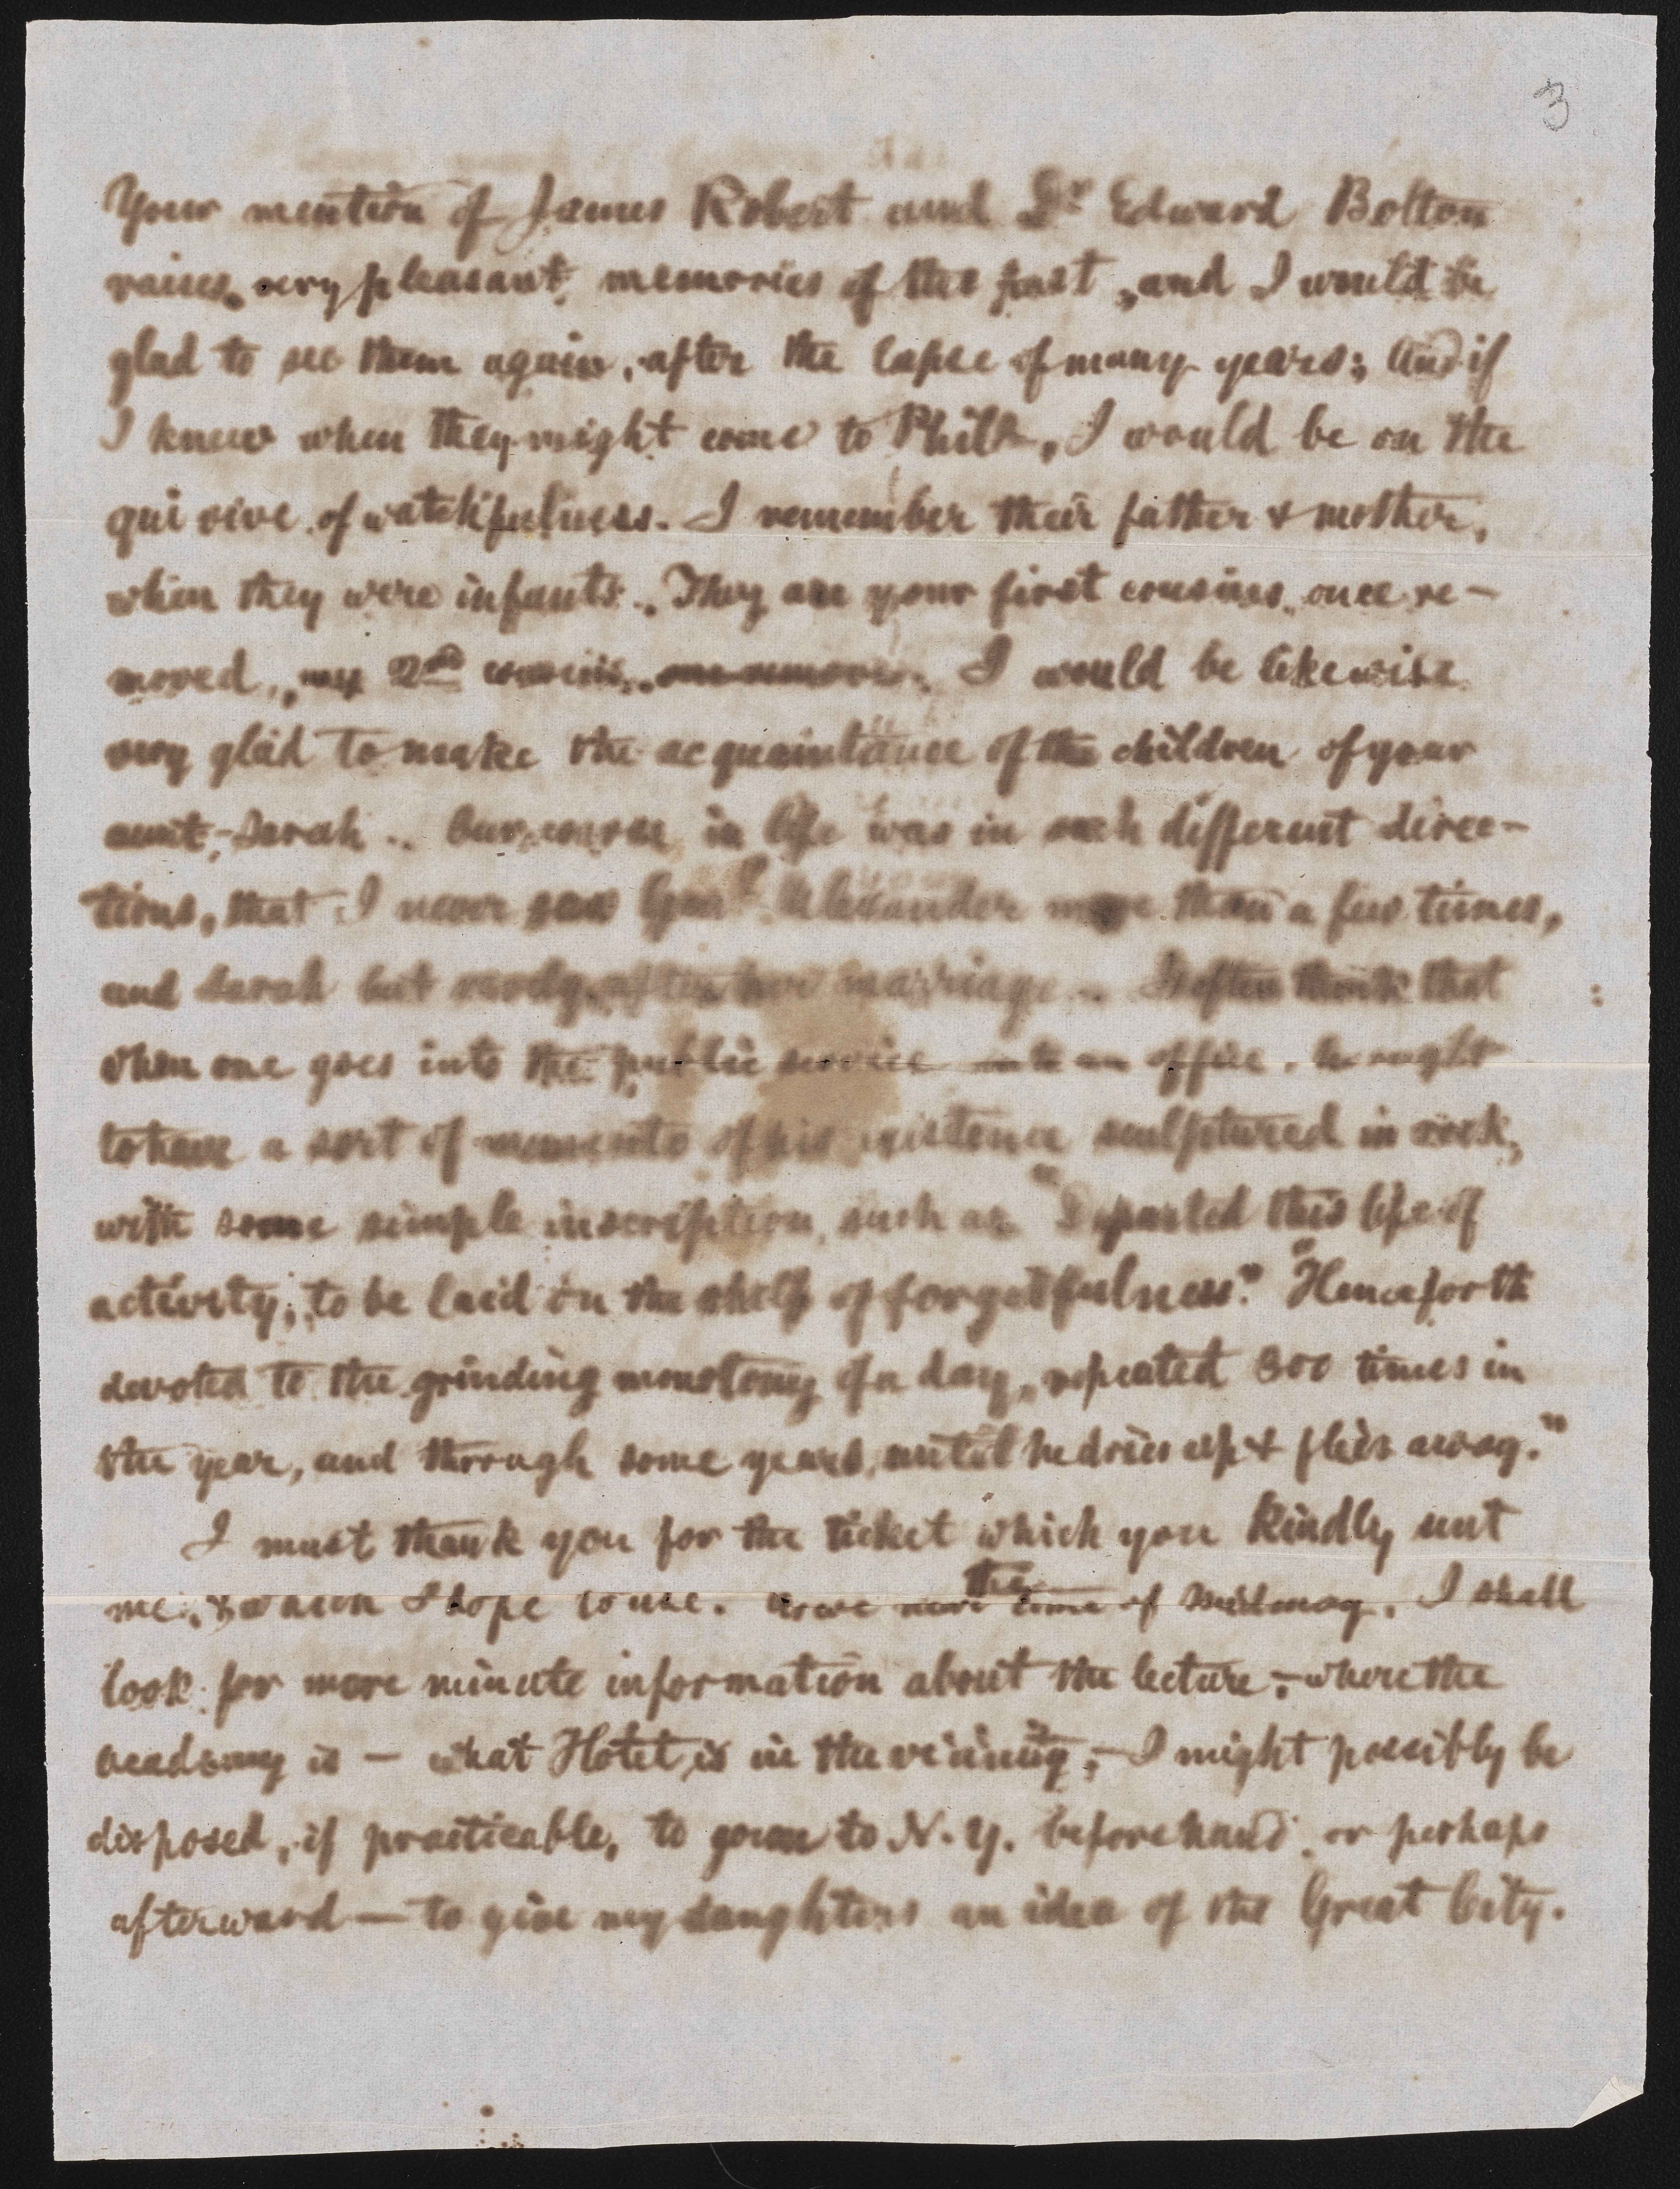 3
Your mention of James Robert and Dr Edward Bolton
raises, very pleasant, memories of the past, and I would be
glad to see them again, after the lapse of many years; And if
I knew when they might come to Phila, I would be on the
qui vive of watchfulness. I remember their father & mother,
when they were infants. They are your first cousins once re-
moved, my 2nd cousins. I would be likewise
very glad to make the acquaintance of the children of your
aunt, Sarah. Our course in life was in such different direc-
tions, that I never saw Genl Alexander more than a few times,
and Sarah but rarely after her marriage. I often think that
when one goes into the public service into an office, he ought
to have a sort of memento of his existence sculptured in rock,
with some simple inscription, such as "Departed this life of
activity, to be laid on the shelf of forgetfulness." "Henceforth
devoted to the grinding monotony of a day, repeated 300 times in
the year, and through some years, until he dries up & flies away."
I must thank you for the ticket which you kindly sent
me, & which I hope to use. As we near the time of Midmay, I shall
look for more minute information about the lecture, - where the
Academy is - what Hotel is in the vicinity, - I might possibly be
disposed, if practicable, to go on to N. Y. beforehand, or perhaps
afterward - to give my daughters an idea of the Great City.